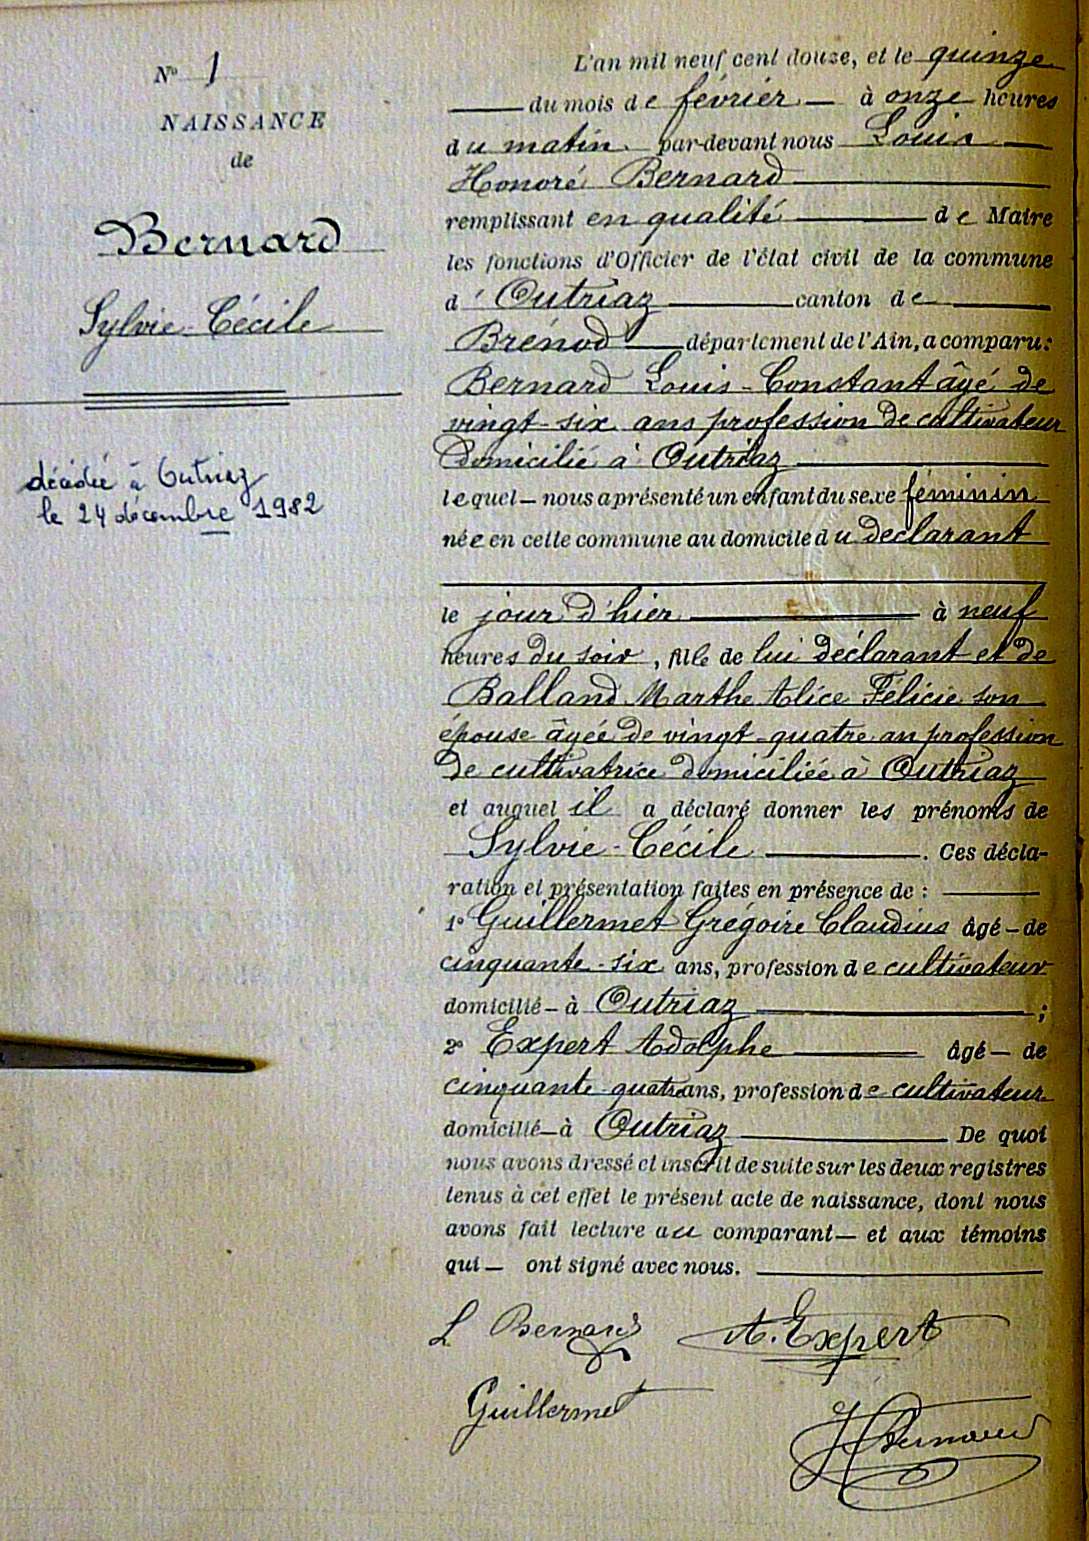 N° 1
NAISSANCE
de
Bernard
Sylvie-Cécile
décédée à Outriaz
le 24 décembre 1982
L'an mil neuf cent douze, et le quinze
du mois de février à onze heures
du matin par-devant nous Louis
Honoré Bernard
remplissant en qualité de Maire
les fonctions d'Officier de l'état civil de la commune
d'Outriaz canton de
Brénod département de l'Ain, a comparu:
Bernard Louis-Constant âgé de
vingt-six ans profession de cultivateur
domicilié à Outriaz
lequel nous a présenté un enfant du sexe féminin
née en cette commune au domicile du declarant
le jour d'hier à neuf
heures du soir, fille de lui déclarant et de
Balland Marthe Alice Félicie son
épouse âgée de vingt-quatre an profession
de cultivatrice domiciliée à Outriaz
et auquel il a déclaré donner les prénoms de
Sylvie-Cécile. Ces décla-
ration et présentation faites en présence de :
1° Guillermet Grégoire Claudius âgé de
cinquante-six ans, profession de cultivateur
domicilié à Outriaz ;
2° Expert Adolphe âgé de
cinquante quatre ans, profession de cultivateur
domicilié à Outriaz De quoi
nous avons dressé et inscrit de suite sur les deux registres
tenus à cet effet le présent acte de naissance, dont nous
avons fait lecture au comparant et aux témoins
qui ont signé avec nous.
L Bernard A. Expert
Guillermet
H Bernard